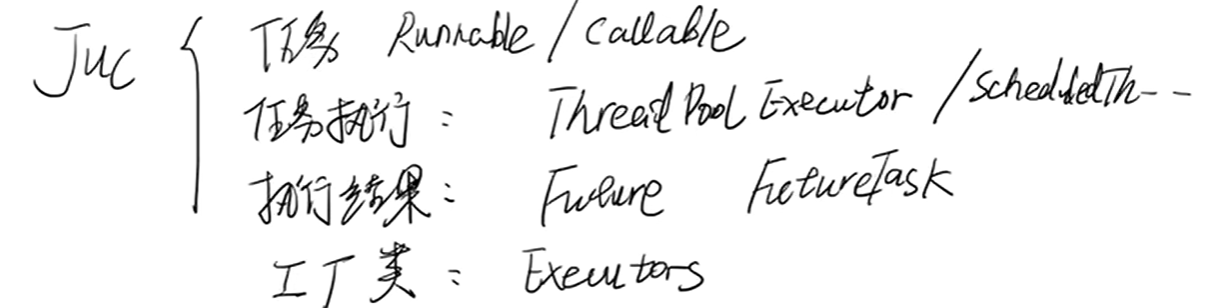 JUC
任务 Runnable / Callable
任务执行： ThreadPoolExecutor / ScheduledTh--
执行结果： Future FutureTask
工厂类： Executors